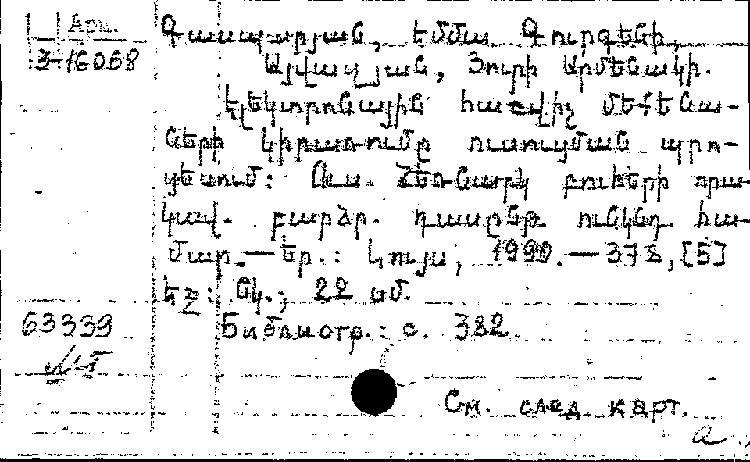 Арм.
3-16068
Գասպարյան, Էմմա Գուրգենի,
Այվազյան, Յուրի Արմենակի.
Էլեկտրոնային հաշվիչ մեքենա-
ների կիրառումը ուսուցման պրո-
ցեսում: Ուս. ձեռնարկ բուհերի որա-
կավ. բարձր. դասընթ. ունկնդ. հա-
մար. — Եր.: Լույս, 1990. — 378, [5]
էջ: նկ.; 22 սմ.
63339
Библиогр.: с. 382.
См. след. карт.
а